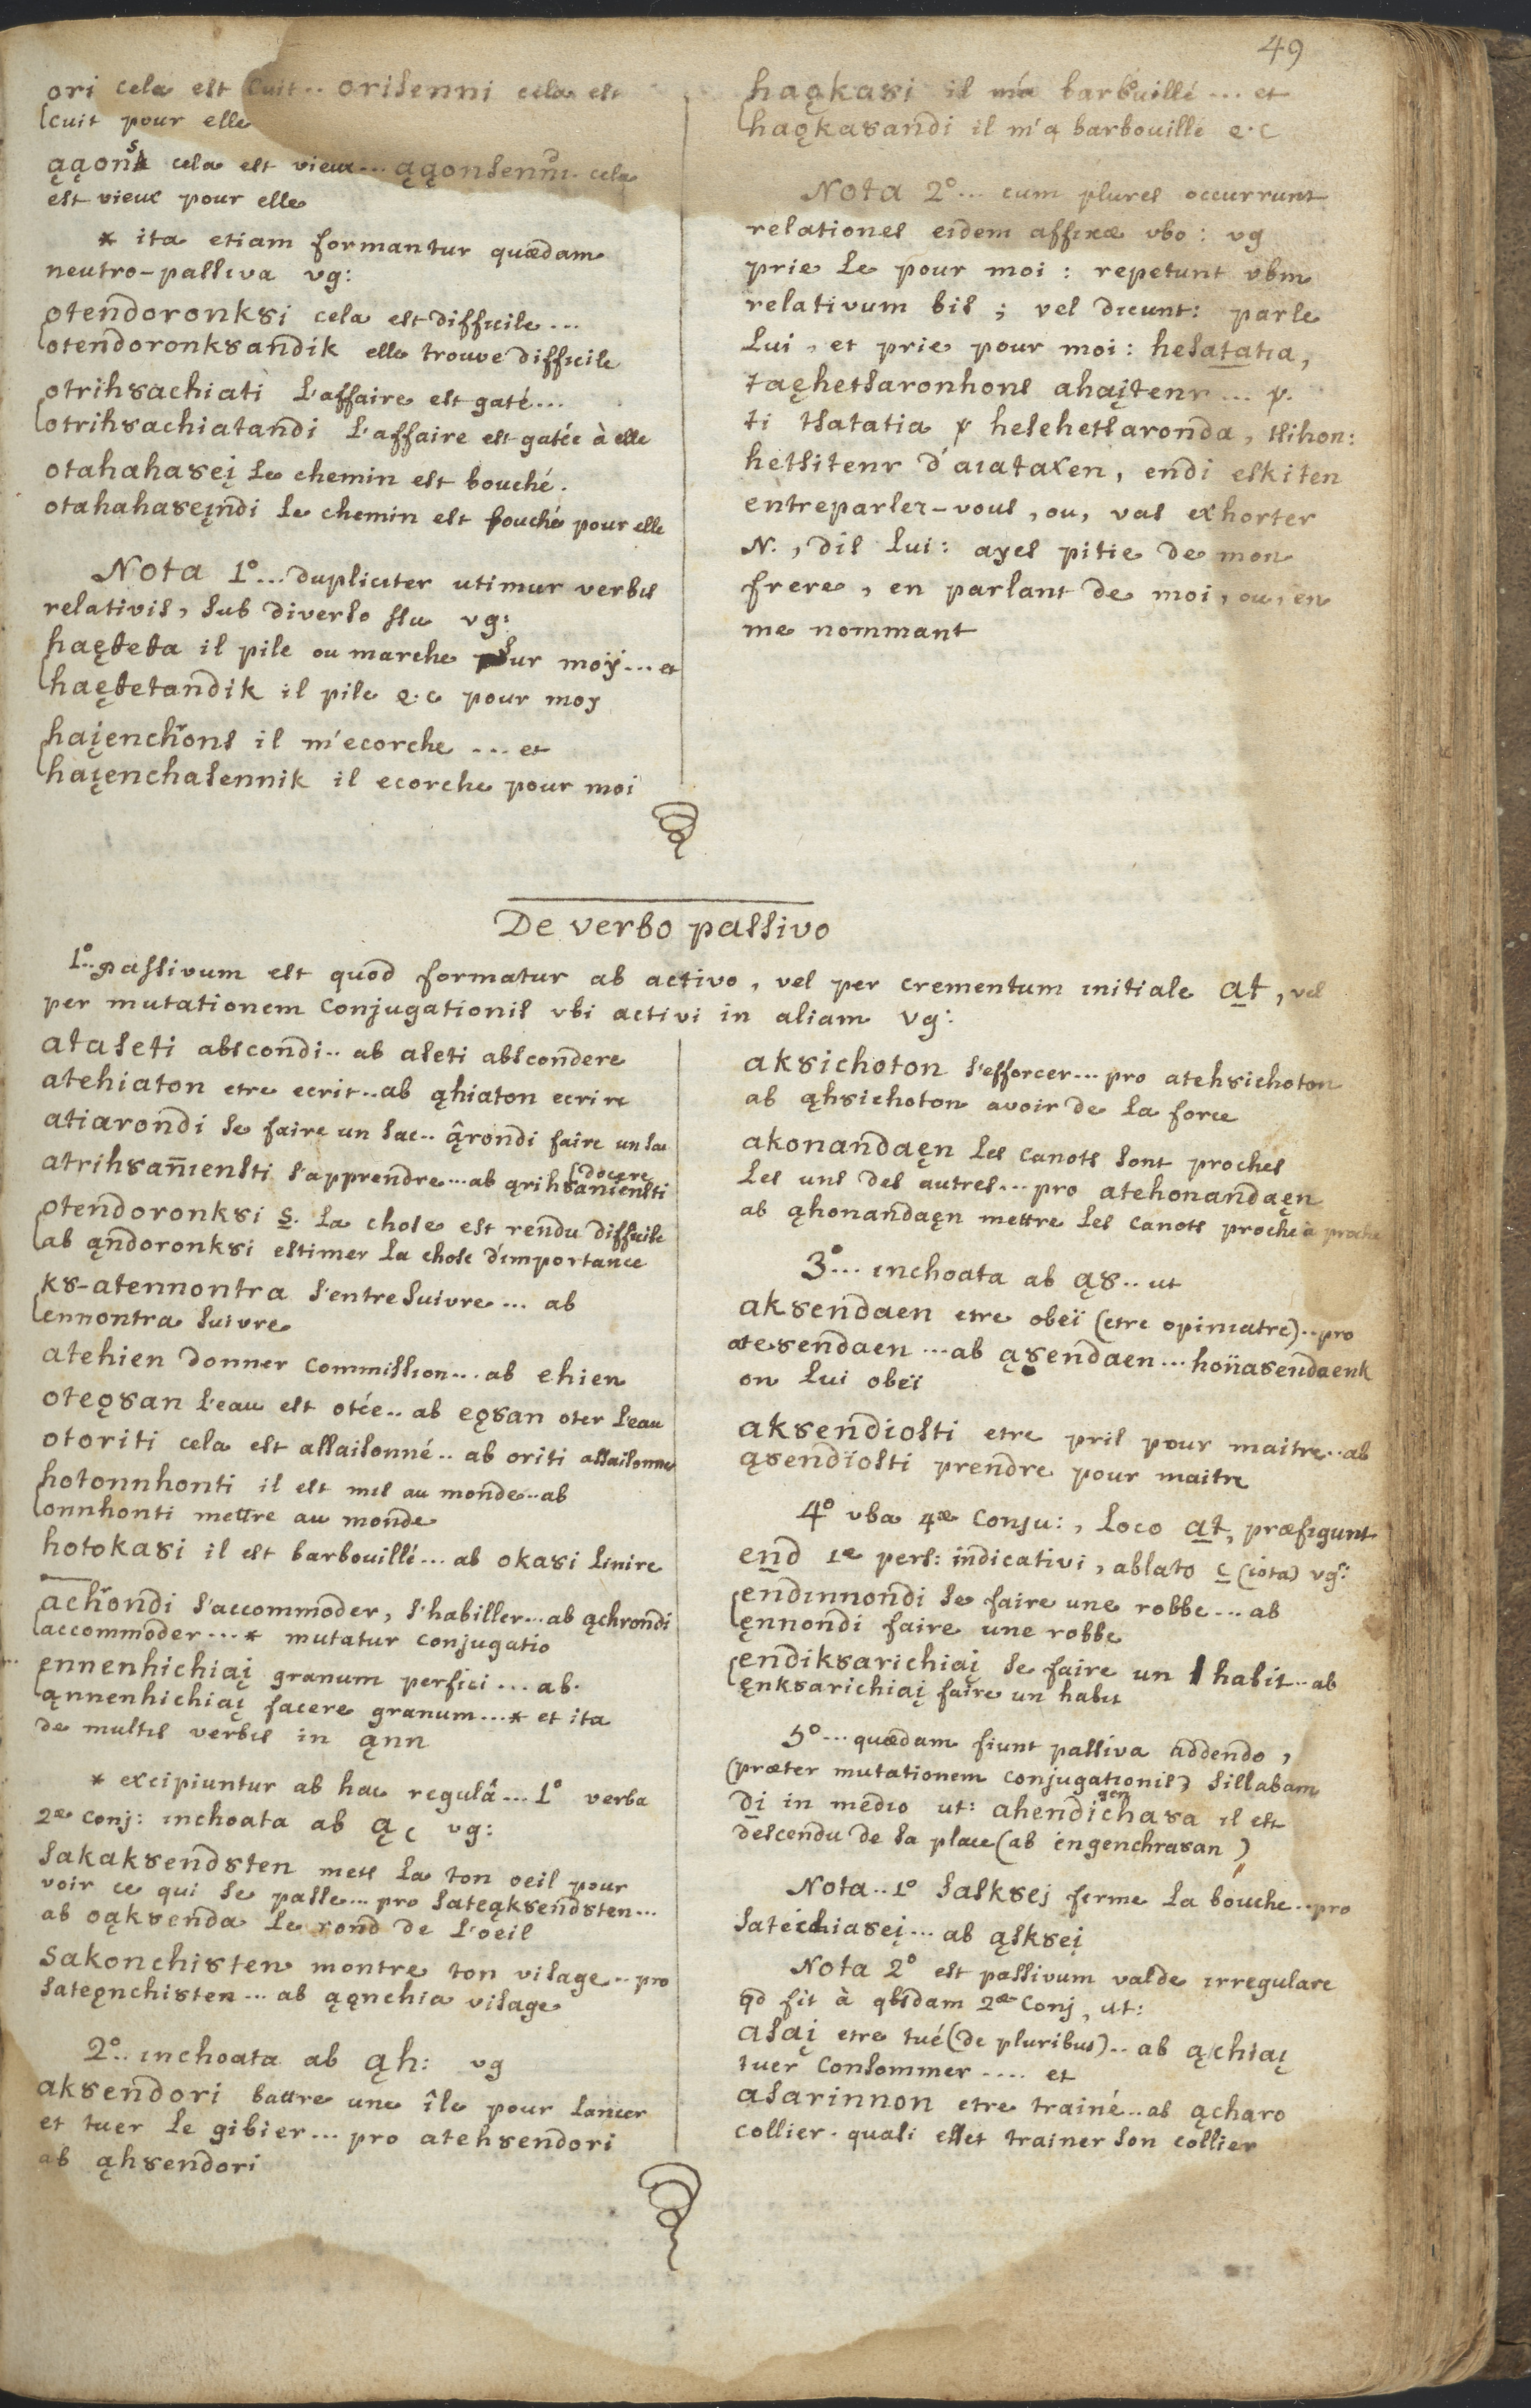 49
ori cela est cuit.. orisenni cela est
cuit pour elle
ąąons cela est vieux... ąąonsenni. cela
est vieux pour elle
* ita etiam formantur quædam
neutro-passiva vg:
otendoronk8i cela est difficile...
otendoronk8andik elle trouve difficile
otrih8achiati l'affaire est gaté...
otrih8achiatandi l'affaire est gatée à elle
otahaha8eį le chemin est bouché.
otahaha8eįndi le chemin est bouché pour elle
Nota 1°... dupliciter utimur verbis
relativis, sub diverso ssu vg:
haęteta il pile ou marche sur moy... et
haętetandik il pile &.c pour moy
haįenchrons il m'ecorche ... et
haįenchasennik il ecorche pour moi
haǫkasi il m'a barbouillé ... et
haǫkasandi il m'a barbouillé &.c
Nota 2°... cum plures occurrunt
relationes eidem affixæ vbo: vg
prie le pour moi: repetunt vbm
relativum bis; vel dicunt: parle
lui, et prie pour moi: hesatatia,
taęhetsaronhons ahaįtenr ... p.
ti tsatatia p hesehetsaronda, tsihon:
hetsitenr d'aiataxen, endi eskiten
entreparler-vous, ou, vas exhorter
N., dis lui: ayes pitie de mon
frere, en parlant de moi, ou, en
me nommant
De verbo passivo
1°.. passivum est quod formatur ab activo, vel per crementum initiale at, vel
per mutationem conjugationis vbi activi in aliam vg:
ataseti abscondi.. ab aseti abscondere
atehiaton etre ecrit.. ab ąhiaton ecrire
atiarondi se faire un sac.. ąrondi faire un sac
atrih8añiensti s'apprendre... ab ąrih8aniensti
docere
otendoronk8i S. la chose est rendu difficile
ab ąndoronk8i estimer la chose d'importance
k8-atennontra s'entresuivre... ab
ennontra suivre
atehien donner commission... ab ehien
oteǫ8an l'eau est otée.. ab eǫ8an oter l'eau
otoriti cela est assaisonné.. ab oriti assaisonner
hotonnhonti il est mis au monde.. ab
onnhonti mettre au monde
hotokasi il est barbouillé... ab okasi linire
achrondi s'accommoder, s'habiller... ab ąchrondi
accommoder...* mutatur conjugatio
ennenhichiaį granum perfici ... ab.
ąnnenhichiaį facere granum...* et ita
de multis verbis in ąnn
* excipiuntur ab hac regulâ... 1° verba
2æ conj: inchoata ab ąc vg:
sakak8end8ten mets la ton oeil pour
voir ce qui se passe... pro sateąk8end8ten...
ab oąk8enda le rond de l'oeil
sakonchi8ten montre ton visage.. pro
sateǫnchi8ten... ab ąǫnchia visage
2°.. inchoata ab ąh: vg
ak8endori battre une île pour lancer
et tuer le gibier... pro ateh8endori
ab ąh8endori
ak8ichoton s'efforcer... pro ateh8ichoton
ab ąh8ichoton avoir de la force
akonandaęn les canots sont proches
les uns des autres... pro atehonandaęn
ab ąhonandaęn mettre les canots proche à proche
3°... inchoata ab ą8.. ut
ak8endaen etre obeï (etre opiniatre).. pro
ate8endaen ... ab ą8endaen... hoñ8a8endaenk
on lui obeï
ak8endiosti etre pris pour maitre.. ab
ą8endiosti prendre pour maitre
4° vba 4æ conju:, loco at, præfigunt
end 1æ pers: indicativi, ablato c (iota) vg:
endinnondi se faire une robbe... ab
ęnnondi faire une robbe
endik8arichiaį se faire un habit.. ab
ęnk8arichiaį faire un habit
5°... quædam fiunt passiva addendo,
(præter mutationem conjugationis) sillabam
di in medio ut: ahendigenchasa il est
descendu de sa place (ab engenchrasan)
Nota.. 1° sask8ej ferme la bouche.. pro
satechia8eį... ab ąsk8eį
Nota 2° est passivum valde irregulare
qd fit à qbsdam 2æ conj, ut:
asaį etre tué (de pluribus).. ab ąchiaį
tuer consommer .... et
asarinnon etre trainé.. ab ącharo
collier. quasi esset trainer son collier